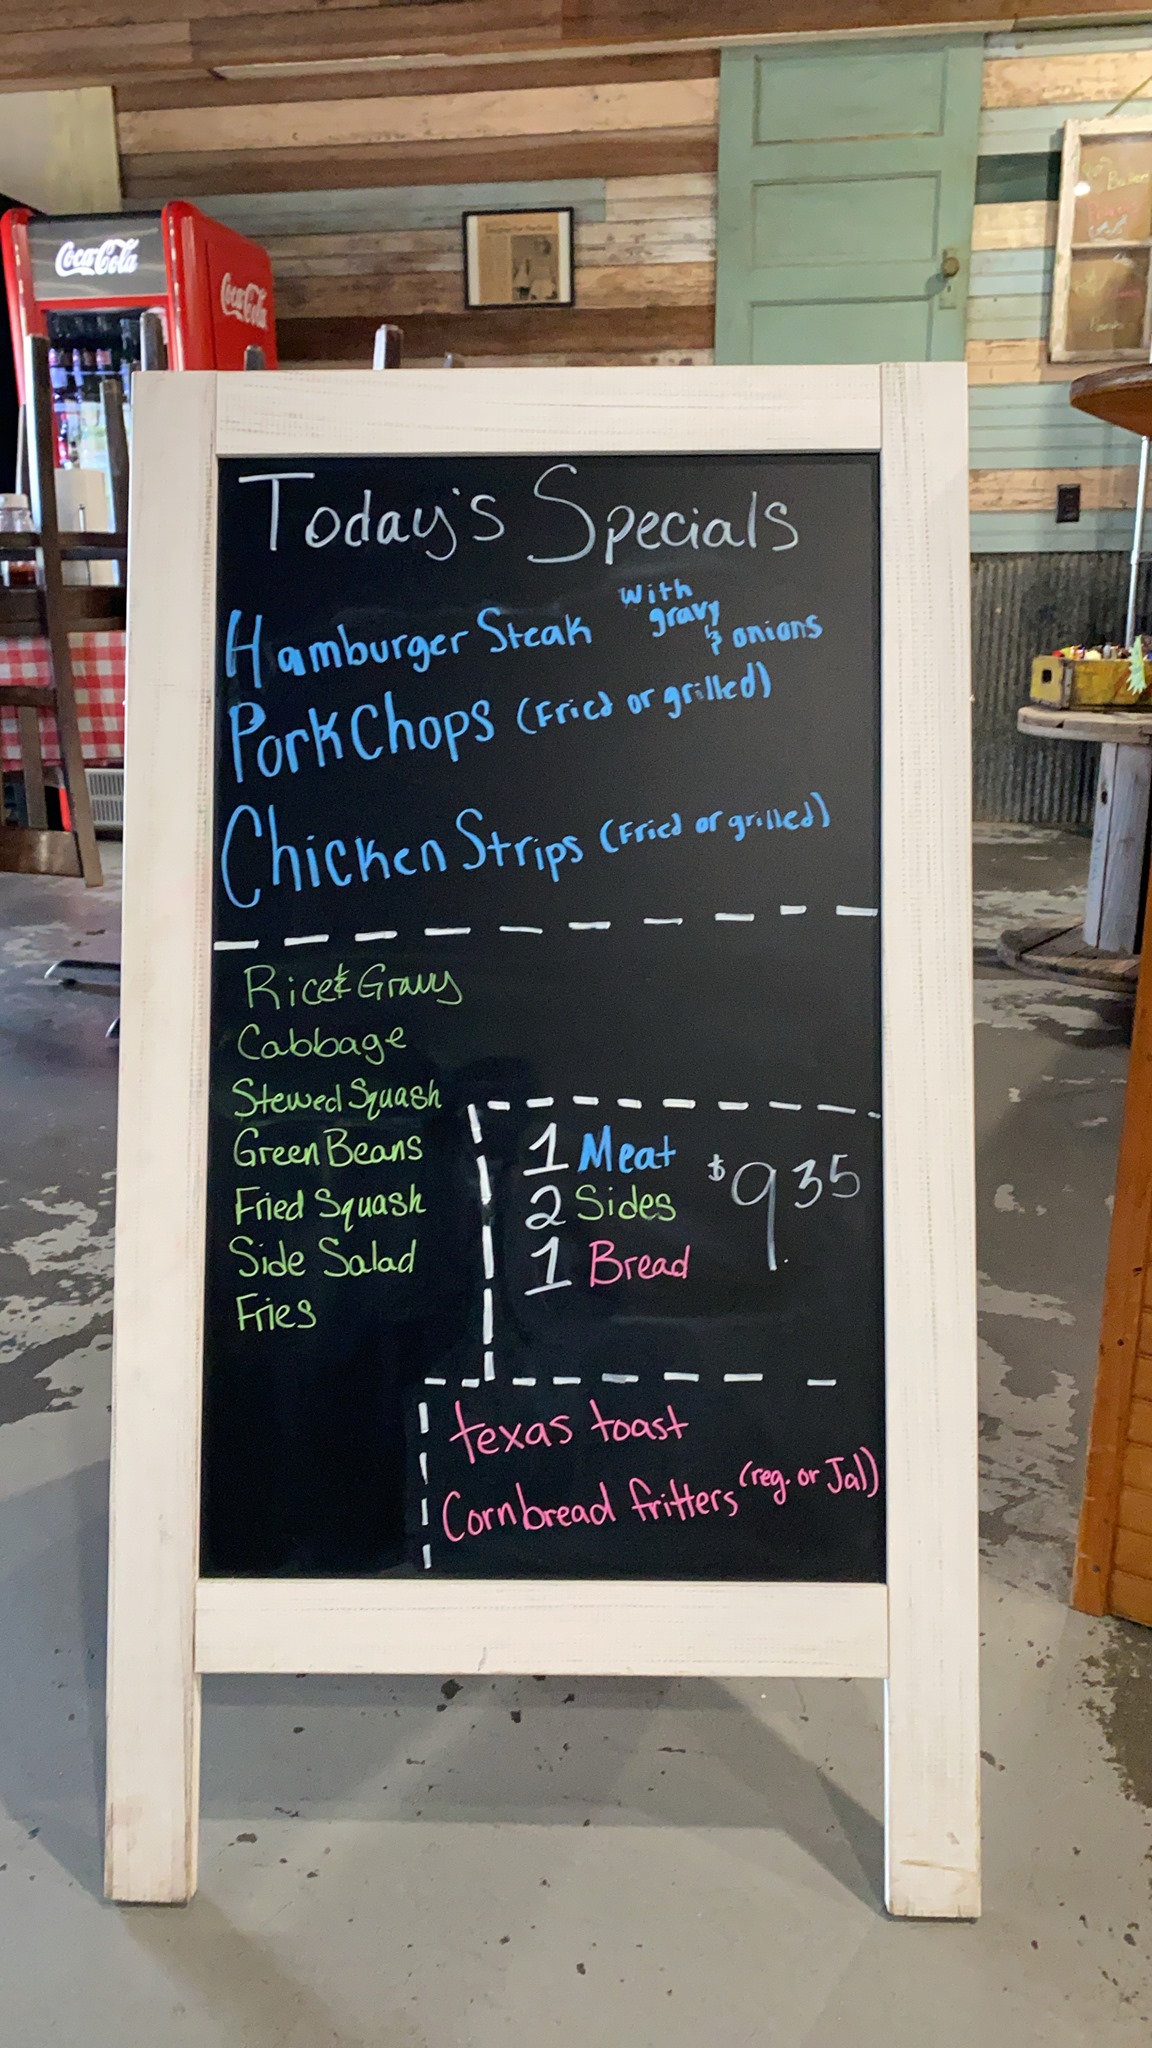 Coca-Cola
Coca-Cola
Today's Specials
Hamburger Steak with gravy & onions
Pork Chops (Fried or grilled)
Chicken Strips (Fried or grilled)
Rice & Gravy
Cabbage
Stewed Squash
Green Beans
Fried Squash
Side Salad
Fries
1 Meat $9.35
2 Sides
1 Bread
texas toast
Cornbread fritters (reg. or Jal)